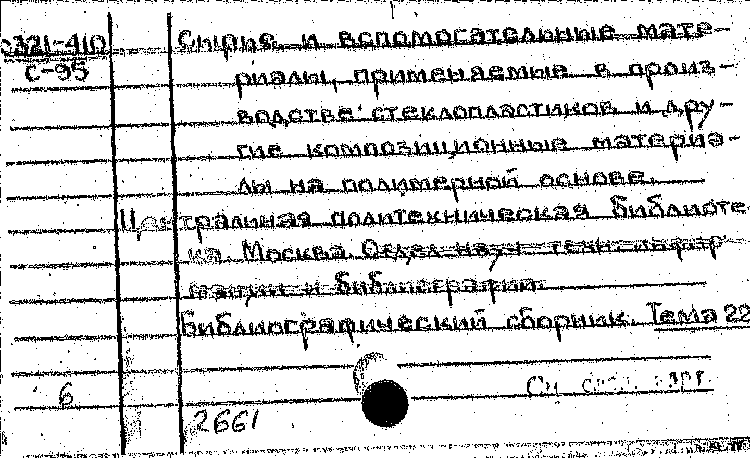 с321-410
С-95
Сырье и вспомогательные мате-
риалы, применяемые в произ-
водстве стеклопластиков и дру-
гие композиционные материа-
лы на полимерной основе.
Центральная политехническая библиоте-
ка. Москва. Отдел научн техн. информ
мации и библиографии.
Библиографический сборник. Тема 22
6
См
2661